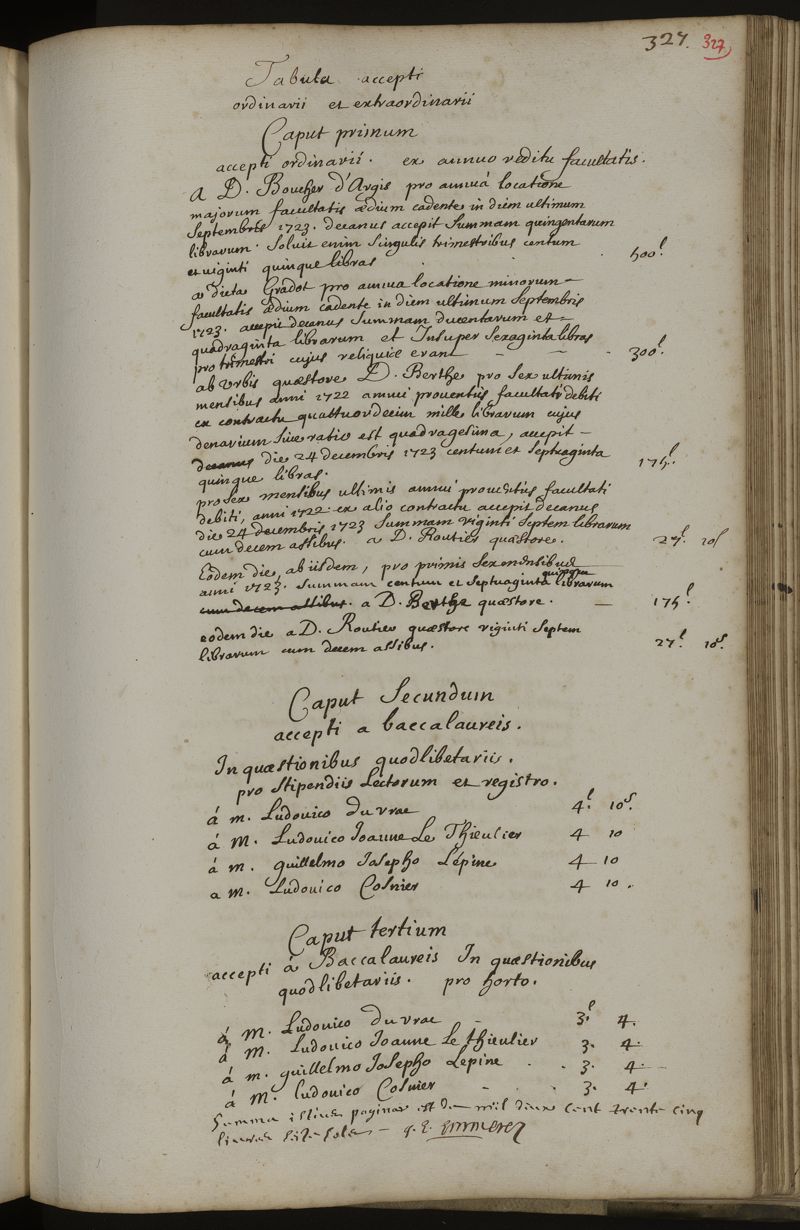 327. 327
Tabula accepti
ordinarii et extraordinarii
Caput primum
accepti ordinarii. ex annuo reditu facultatis.
A D. Boucher d'Argis pro annuâ locatione
majorum facultatis ædium cadente in diem ultimum
Septembris 1723. decanus accepit Summam quingentarum
librarum. Soluit enim Singulis trimestribus centum
et viginti quinque libras . . . 500 l.
a dicta Gradot pro annua locatione minorum
facultatis ædium cadente in diem ultimum Septembris
1723. accepit decanus Summam ducentarum et
quadraginta librarum et Insuper Sexaginta libras
pro trimestri cujus reliquiæ erant - - - 300 l.
ab Urbis quæstore D. Berthe pro Sex ultimis
mensibus anni 1722 annui proventus facultati debiti
ex contractu quattuordecim mille librarum cujus
denarium Sive ratio est quadragesima, accepit -
decanus die 24 decembris 1723 centum et Septuaginta
quinque libras. 175 l.
pro Sex mensibus ultimis annui proventus facultati
debiti, anni 1722. ex alio contractu accepit decanus
die 24 decembris 1723 Summam viginti Septem librarum
cum decem assibus. a D. Routier quæstore. 27 l. 10 s
Eodem die, ab iisdem, pro primis Sex mensibus
anni 1723. Summam centum et Septuaginta quinque librarum
cum decem assibus. a D. Berthe quæstore. — 175 l.
eodem die a D. Routier quæstore viginti Septem
librarum cum decem assibus. 27 l. 10 s.
Caput Secundum
accepti a baccalaureis.
In quæstionibus quodlibetariis.
pro Stipendiis Lectorum et registro.
á m. Ludovico Duvrac 4 l. 10 s.
á M. Ludovico Joanne Le Thieulier 4 10
á m. guillelmo Josepho Lépine 4 10
a m. Ludovico Cosnier 4 10.
Caput tertium
accepti á Baccalaureis In quæstionibus
quodlibetariis. pro horto.
á M. Ludovico Duvrac - 3 l. 4.
á M. Ludovico Joanne Le thieulier 3. 4.
á m. guillelmo Josepho Lepine . . 3. 4.
á M. Ludovico Cosnier . . 3. 4.
Summa istius paginae est de mil deux cent trente cinq
livres